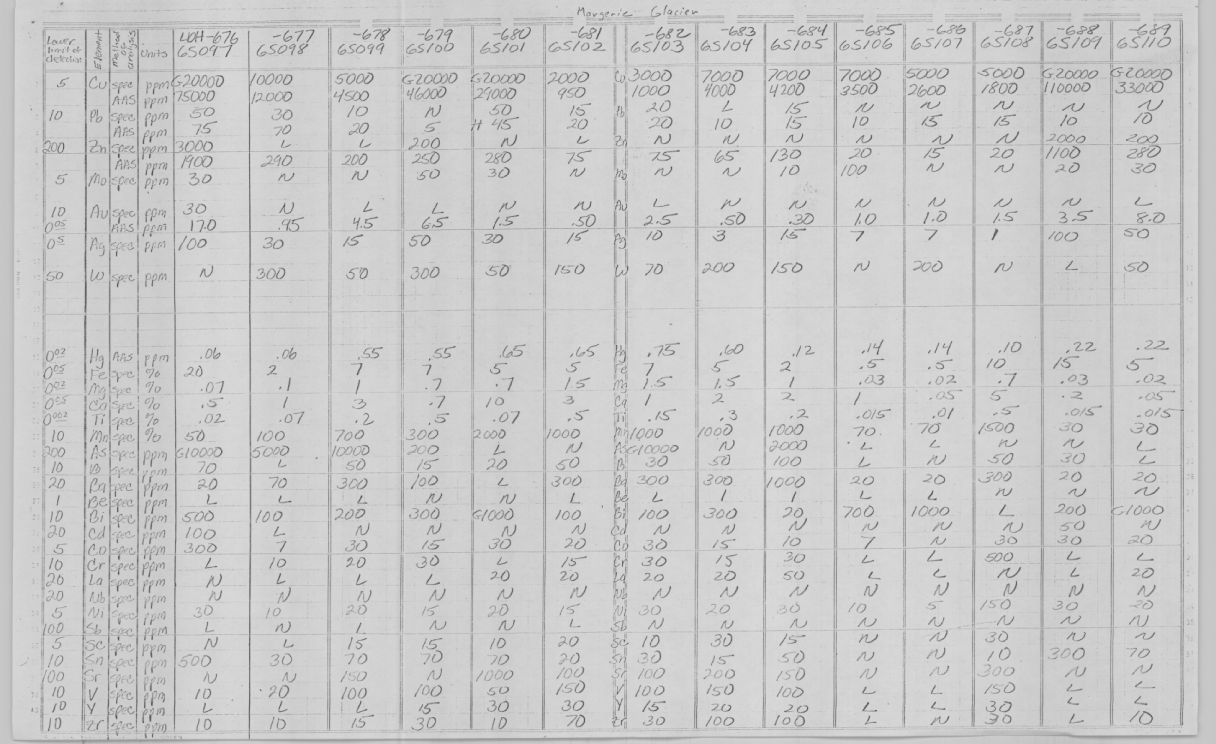 Margerie Glacier
Lower limit of detection Element Method of analysis Units WDH-676 -677 -678 -679 -680 -681 -682 -683 -684 -685 -686 -687 -688 -689
65097 65098 65099 65100 65101 65102 65103 65104 65105 65106 65107 65108 65109 65110
5 Cu spec ppm G20000 10000 5000 G20000 G20000 2000 Cu 3000 7000 7000 7000 5000 5000 G20000 G20000
AAS ppm 75000 12000 4500 46000 29000 950 1000 4000 4200 3500 2600 1800 110000 33000
10 Pb spec ppm 50 30 10 N 50 15 Pb 20 L 15 N N N N N
AAS ppm 75 70 20 5 H 45 20 20 10 15 10 15 15 10 10
200 Zn spec ppm 3000 L L 200 N N Zn N N N N N N 2000 200
AAS ppm 1900 290 200 250 280 75 75 65 130 20 15 20 1100 280
5 Mo spec ppm 30 N N 50 30 N Mo N N 10 100 N N 20 30
10 Au spec ppm 30 N L L N N Au L N N N N N N L
0.05 AAS ppm .95 4.5 6.5 1.5 .50 2.5 .50 .30 1.0 1.0 1.5 3.5 8.0
0.5 Ag spec ppm 100 30 15 50 30 15 Ag 10 3 1.5 7 7 1 100 50
50 W spec ppm N 300 50 300 50 150 W 70 200 150 N 200 N L 50
0.02 Hg AAS ppm .06 .06 .55 .55 .65 .65 Hg .75 .60 .12 .14 .14 .10 .22 .22
0.05 Fe spec % 20 2 7 7 5 5 Fe 7 5 2 .5 .5 10 15 5
0.02 Mg spec % .07 .1 1 .7 .7 1.5 Mg 1.5 1.5 1 .03 .02 .7 .03 .02
0.05 Ca spec % .5 1 3 .7 10 3 Ca 1 2 2 1 .05 5 .2 .05
0.002 Ti spec % .02 .07 .2 .5 .07 .5 Ti .15 .3 .2 .015 .01 .5 .015 .015
10 Mn spec % 50 100 700 300 2000 1000 Mn 1000 1000 1000 70 70 1500 30 30
200 As spec ppm G10000 5000 10000 200 L N As G10000 N 2000 L L N N L
10 B spec ppm 70 L 50 15 20 50 B 30 50 100 L N 50 30 L
20 Ba spec ppm 20 70 300 100 L 300 Ba 300 300 1000 20 20 300 20 20
1 Be spec ppm L L L N N L Be L 1 1 L L N N N
10 Bi spec ppm 500 100 200 300 G1000 100 Bi 100 300 20 700 1000 L 200 G1000
20 Cd spec ppm 100 L N N N N Cd N N N N N N 50 N
5 Co spec ppm 300 7 30 15 30 20 Co 30 15 10 7 N 30 30 20
10 Cr spec ppm L 10 20 30 L 15 Cr 30 15 30 L L 500 L L
20 La spec ppm N L L L 20 20 La 20 20 50 L L N L 20
20 Nb spec ppm N N N N N N Nb N N N N N N N N
5 Ni spec ppm 30 10 20 15 20 15 Ni 30 20 30 10 5 150 30 20
100 Sb spec ppm L N L N N L Sb N N N N N N N N
5 Sc spec ppm N L 15 15 10 20 Sc 10 30 15 N N 30 N N
10 Sn spec ppm 500 30 70 70 70 20 Sn 30 15 50 N N 10 300 70
100 Sr spec ppm N N 150 N 1000 100 Sr 100 200 150 N N 300 N N
10 V spec ppm 10 20 100 100 50 150 V 100 150 100 L L 150 L L
10 Y spec ppm L L L 15 30 30 Y 15 20 20 L L 30 L L
10 Zr spec ppm 10 10 15 30 10 70 Zr 30 100 100 L N 30 L 10